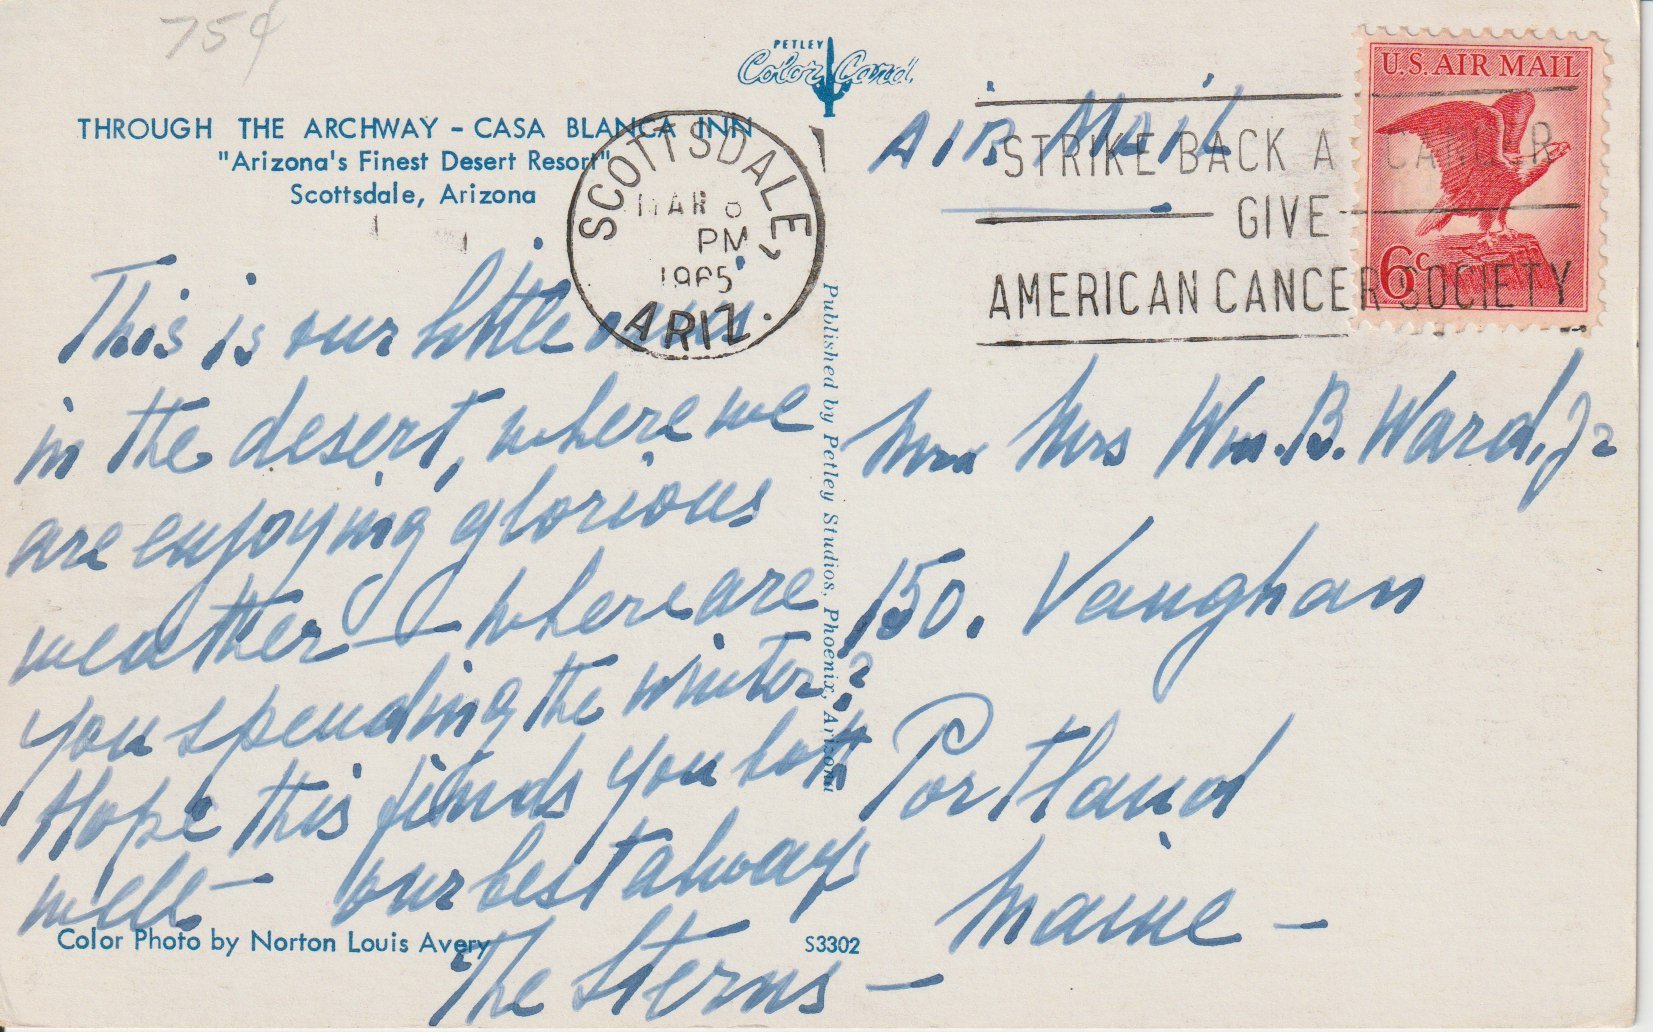 75¢
PETLEY
Color Card
THROUGH THE ARCHWAY – CASA BLANCA INN
"Arizona's Finest Desert Resort"
Scottsdale, Arizona
SCOTTSDALE,
MAR
PM
1965
ARIZ.
U.S. AIR MAIL
6c
STRIKE BACK A CANCER
GIVE
AMERICAN CANCER SOCIETY
AIR MAIL
This is our little
in the desert, where we
are enjoying glorious
weather — where are
you spending the winter?
Hope this finds you both
well — our best always
The Sterns —
Published by Petley Studios, Phoenix, Arizona
Mrs Wm. B. Ward, Jr
150. Vaughan
Portland
Maine —
Color Photo by Norton Louis Avery
S3302